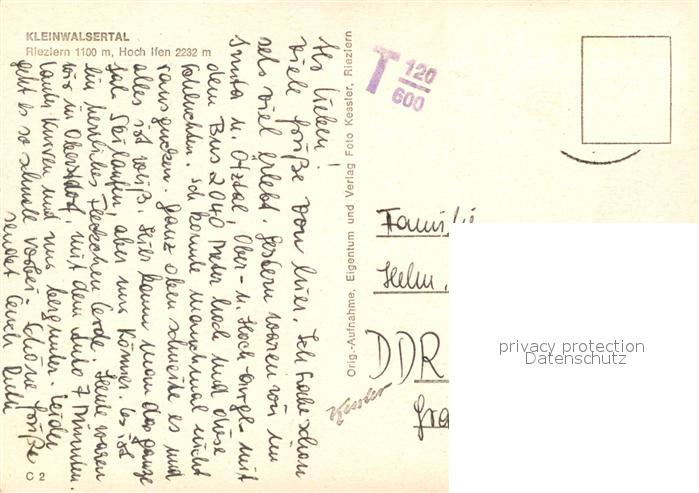 KLEINWALSERTAL
Riezlern 1100 m, Hoch Ifen 2232 m
Ihr Lieben!
Viele Grüße von hier. Ich habe schon
sehr viel erlebt. Gestern waren wir im
u. Ötztal, Ober- u. Hoch-Gurgl mit
dem Bus 2040 Meter hoch und diese
Schluchten. Ich konnte manchmal nicht
rausgucken. Ganz oben schneite es und
alles ist weiß. Hier kann man das ganze
Jahr Skilaufen, aber nur Könner. Es ist
ein herrliches Fleckchen Erde. Heute waren
wir in Oberstdorf, mit dem Auto 7 Minuten.
lauter Kurven und nur bergunter. Leider
geht es so schnell vorbei. Schöne Grüße
sendet Euch
C 2
Orig.-Aufnahme, Eigentum und Verlag Foto Kessler, Riezlern
Kessler
T 120
600
Familie
Helm.
DDR
privacy protection
Datenschutz